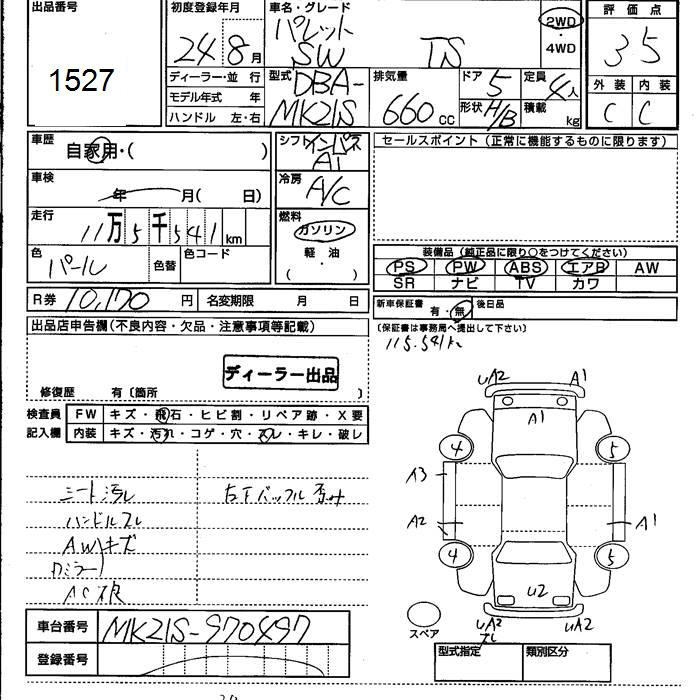 出品番号
1527
初度登録年月
24年8月
車名・グレード
パレット
SW TS
2WD
・
4WD
評価点
35
外装 内装
C C
ディーラー・並行
モデル年式 年
ハンドル 左・右
型式 DBA-
MK21S
排気量
660cc
ドア 5
形状 H/B
定員 4人
積載 kg
車歴
自家用・( )
車検
年 月( 日)
走行
11万5千541km
色
パール
色替
色コード
シフト インパネ
AT
冷房
A/C
燃料
ガソリン
軽・油
( ・ )
セールスポイント(正常に機能するものに限ります)
装備品(純正品に限り○をつけてください)
PS PW ABS エアB AW
SR ナビ TV カワ
R券 10,170円
名変期限 月 日
新車保証書 有・無
後日品
(保証書は事務局へ提出して下さい)
115.541km
出品店申告欄(不良内容・欠品・注意事項等記載)
ディーラー出品
修復歴 有〔箇所 〕
検査員
記入欄
FW キズ・飛石・ヒビ割・リペア跡・X要
内装 キズ・汚れ・コゲ・穴・スレ・キレ・破レ
シート汚レ
ハンドルスレ
AWキズ
ドミラー
右下バッフル歪み
uA2 A1
A1
4 5
A3
A2 A1
4 5
u2
uA2 uA2
スペア
車台番号 MK21S-970497
登録番号
型式指定 類別区分